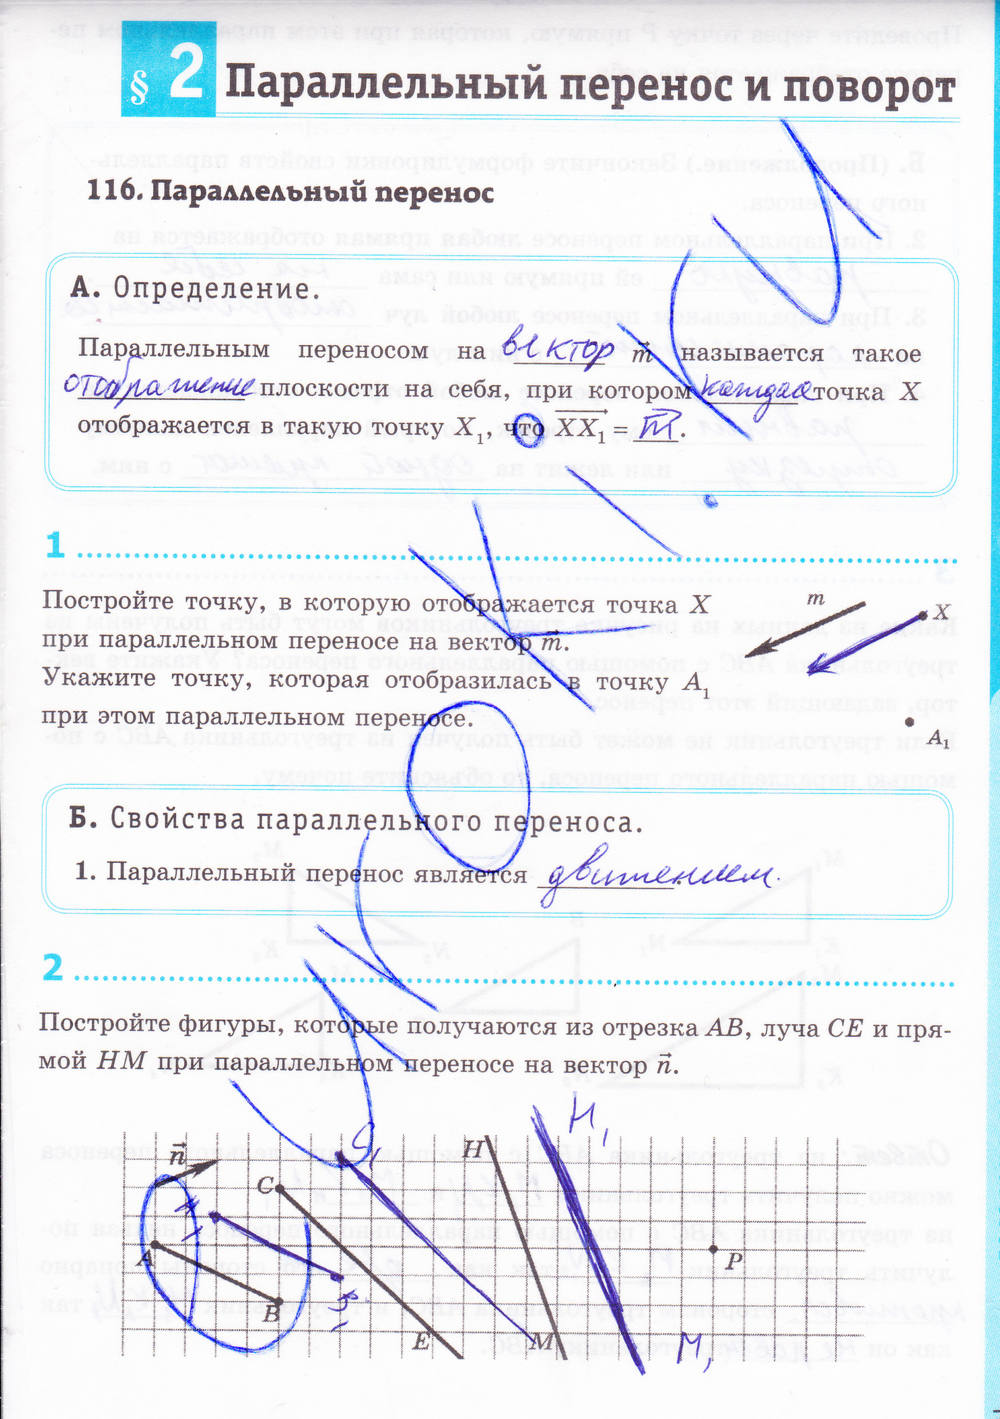 § 2 Параллельный перенос и поворот
116. Параллельный перенос
А. Определение.
Параллельным переносом на вектор m⃗ называется такое
отображение плоскости на себя, при котором каждая точка X
отображается в такую точку X₁, что XX₁ = m⃗.
1
Постройте точку, в которую отображается точка X
при параллельном переносе на вектор m⃗.
Укажите точку, которая отобразилась в точку A₁
при этом параллельном переносе.
m
X
A₁
Б. Свойства параллельного переноса.
1. Параллельный перенос является движением.
2
Постройте фигуры, которые получаются из отрезка AB, луча CE и пря-
мой HM при параллельном переносе на вектор n⃗.
H₁
n⃗
H
C
A
P
B
E
M
M₁